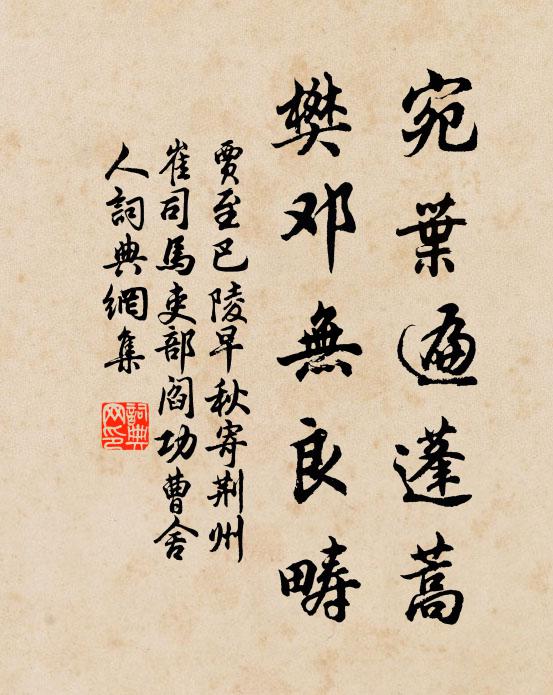 宛葉遍蓬蒿
樊邓無良畴
賈至巴陵早秋寄荆州
崔司馬吏部閻功曹舍
人詞典網集
詞典
网印